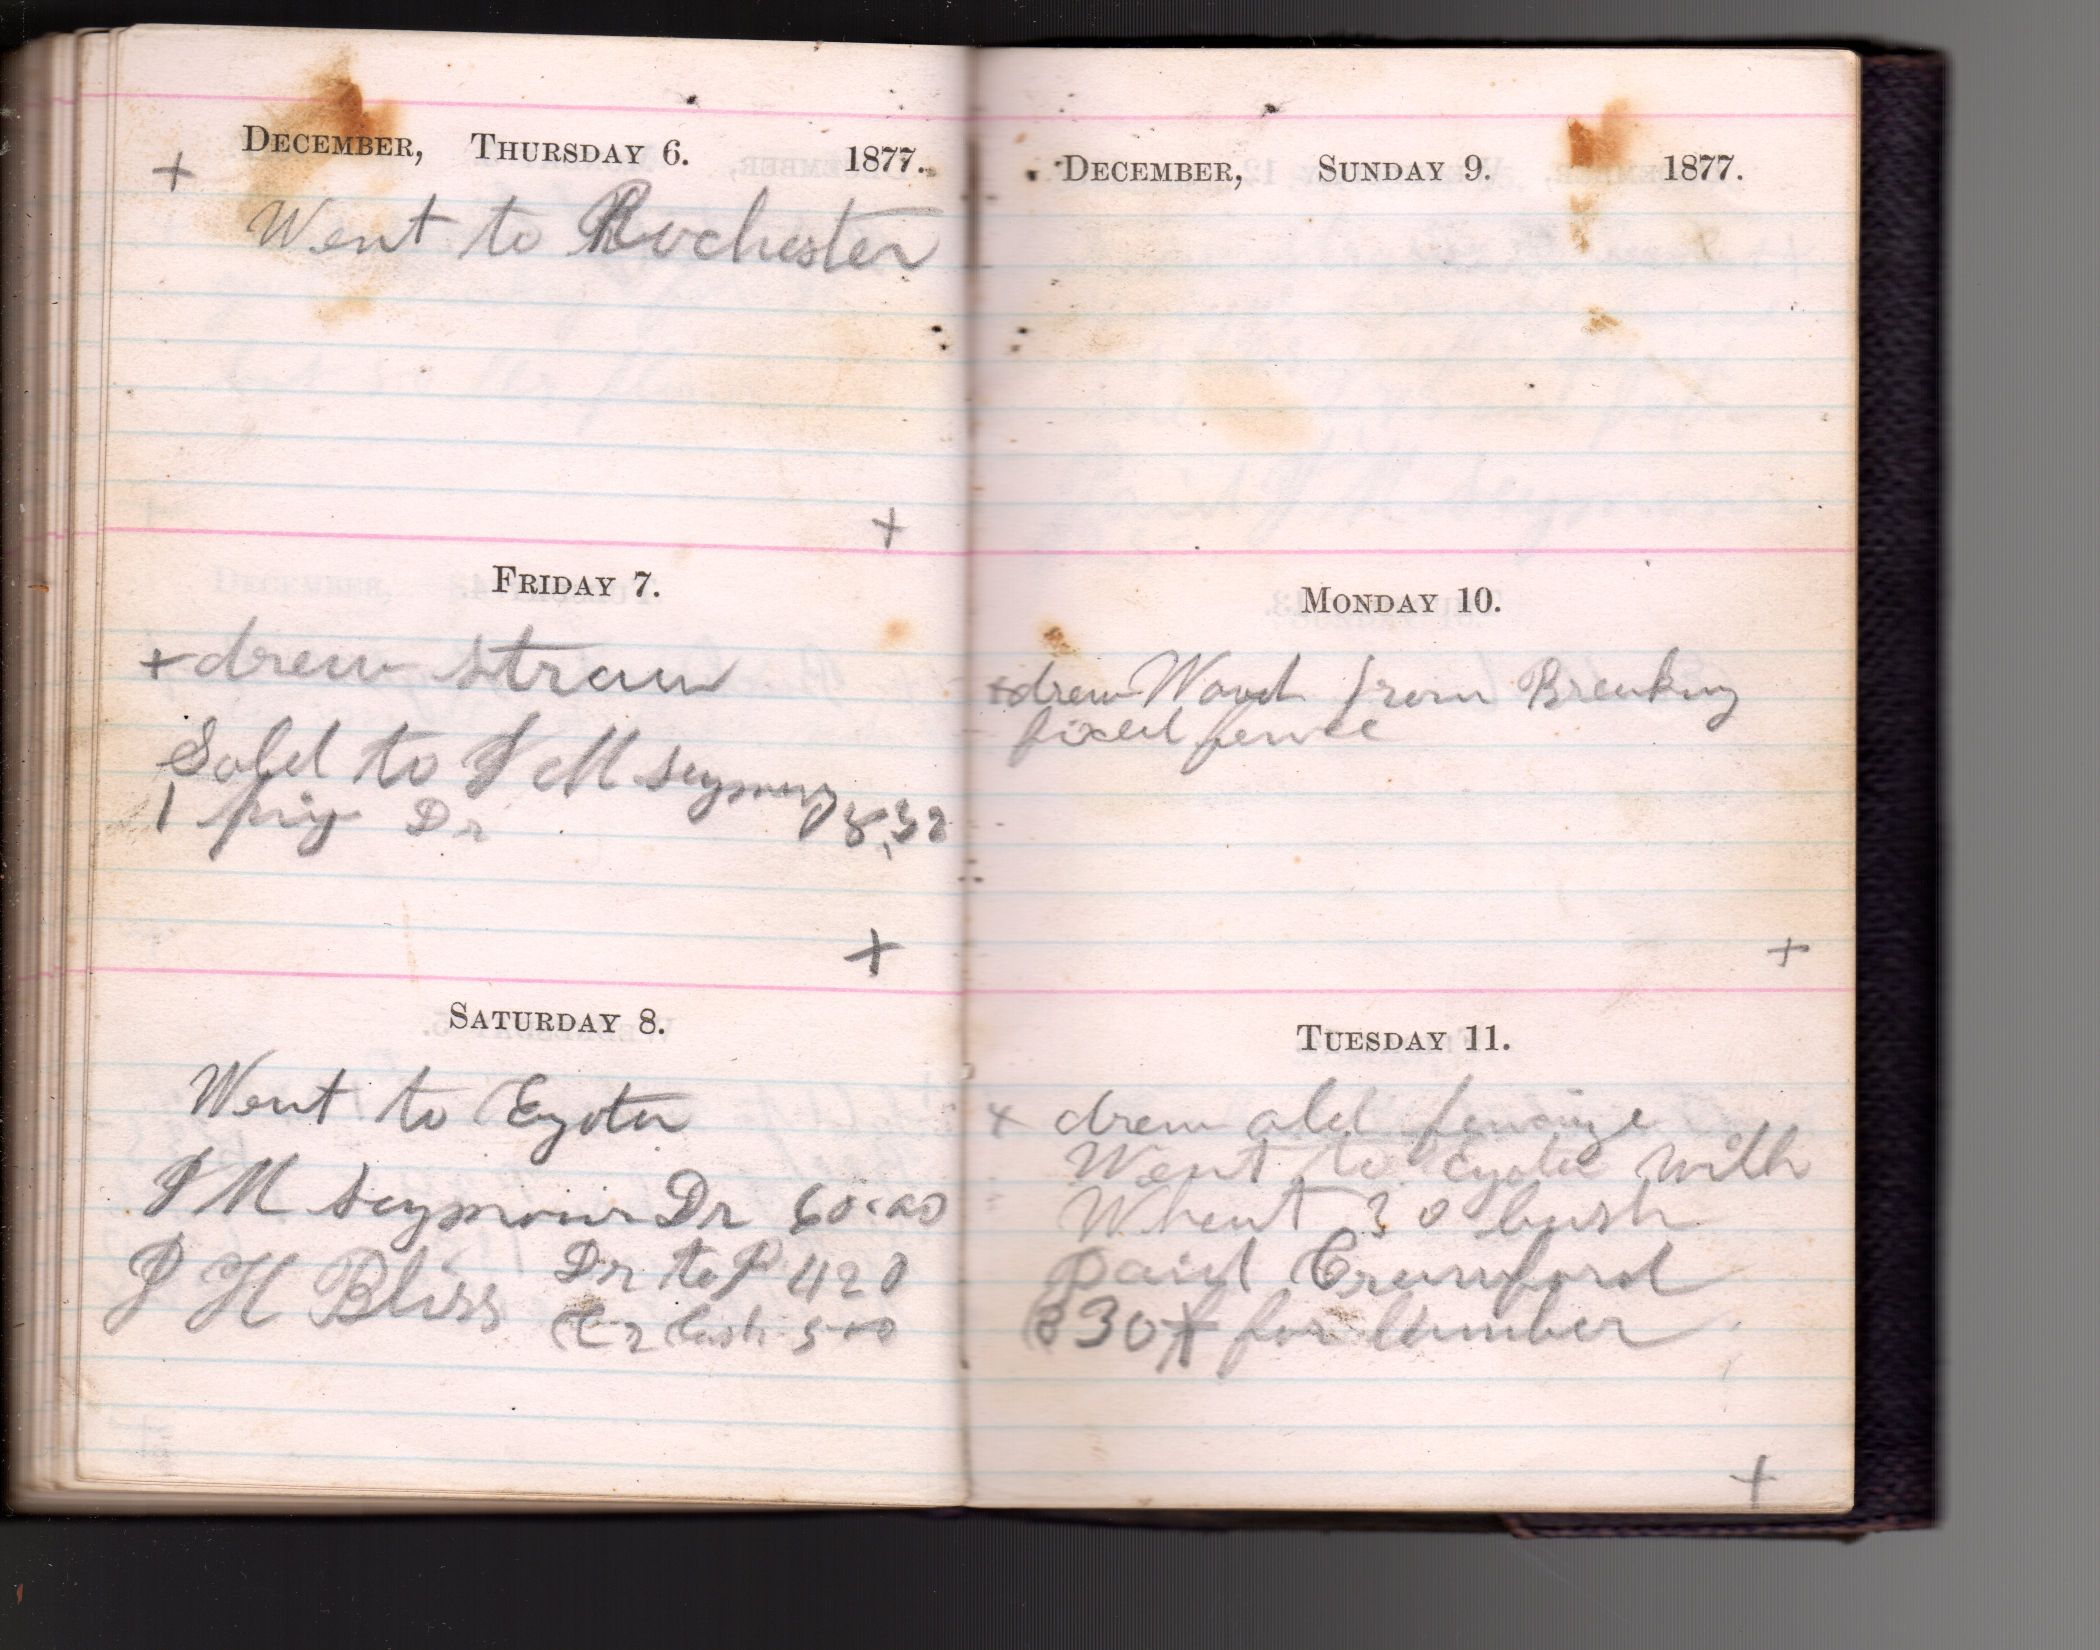 DECEMBER, THURSDAY 6. 1877.
+
Went to Rochester
+
FRIDAY 7.
+ drew straw
Sold to J M Seymour
1 pig Dr 8,32
+
SATURDAY 8.
Went to Eyota
J M Seymour Dr 60.00
J H Bliss Dr to P 420
Cr Cash 500
DECEMBER, SUNDAY 9. 1877.
MONDAY 10.
+ drew Wood from Breaking
fixed fence
+
TUESDAY 11.
+ drew old fencing
Went to Eyota with
Wheat 30 bush
paid Crawford
$30 for lumber
+